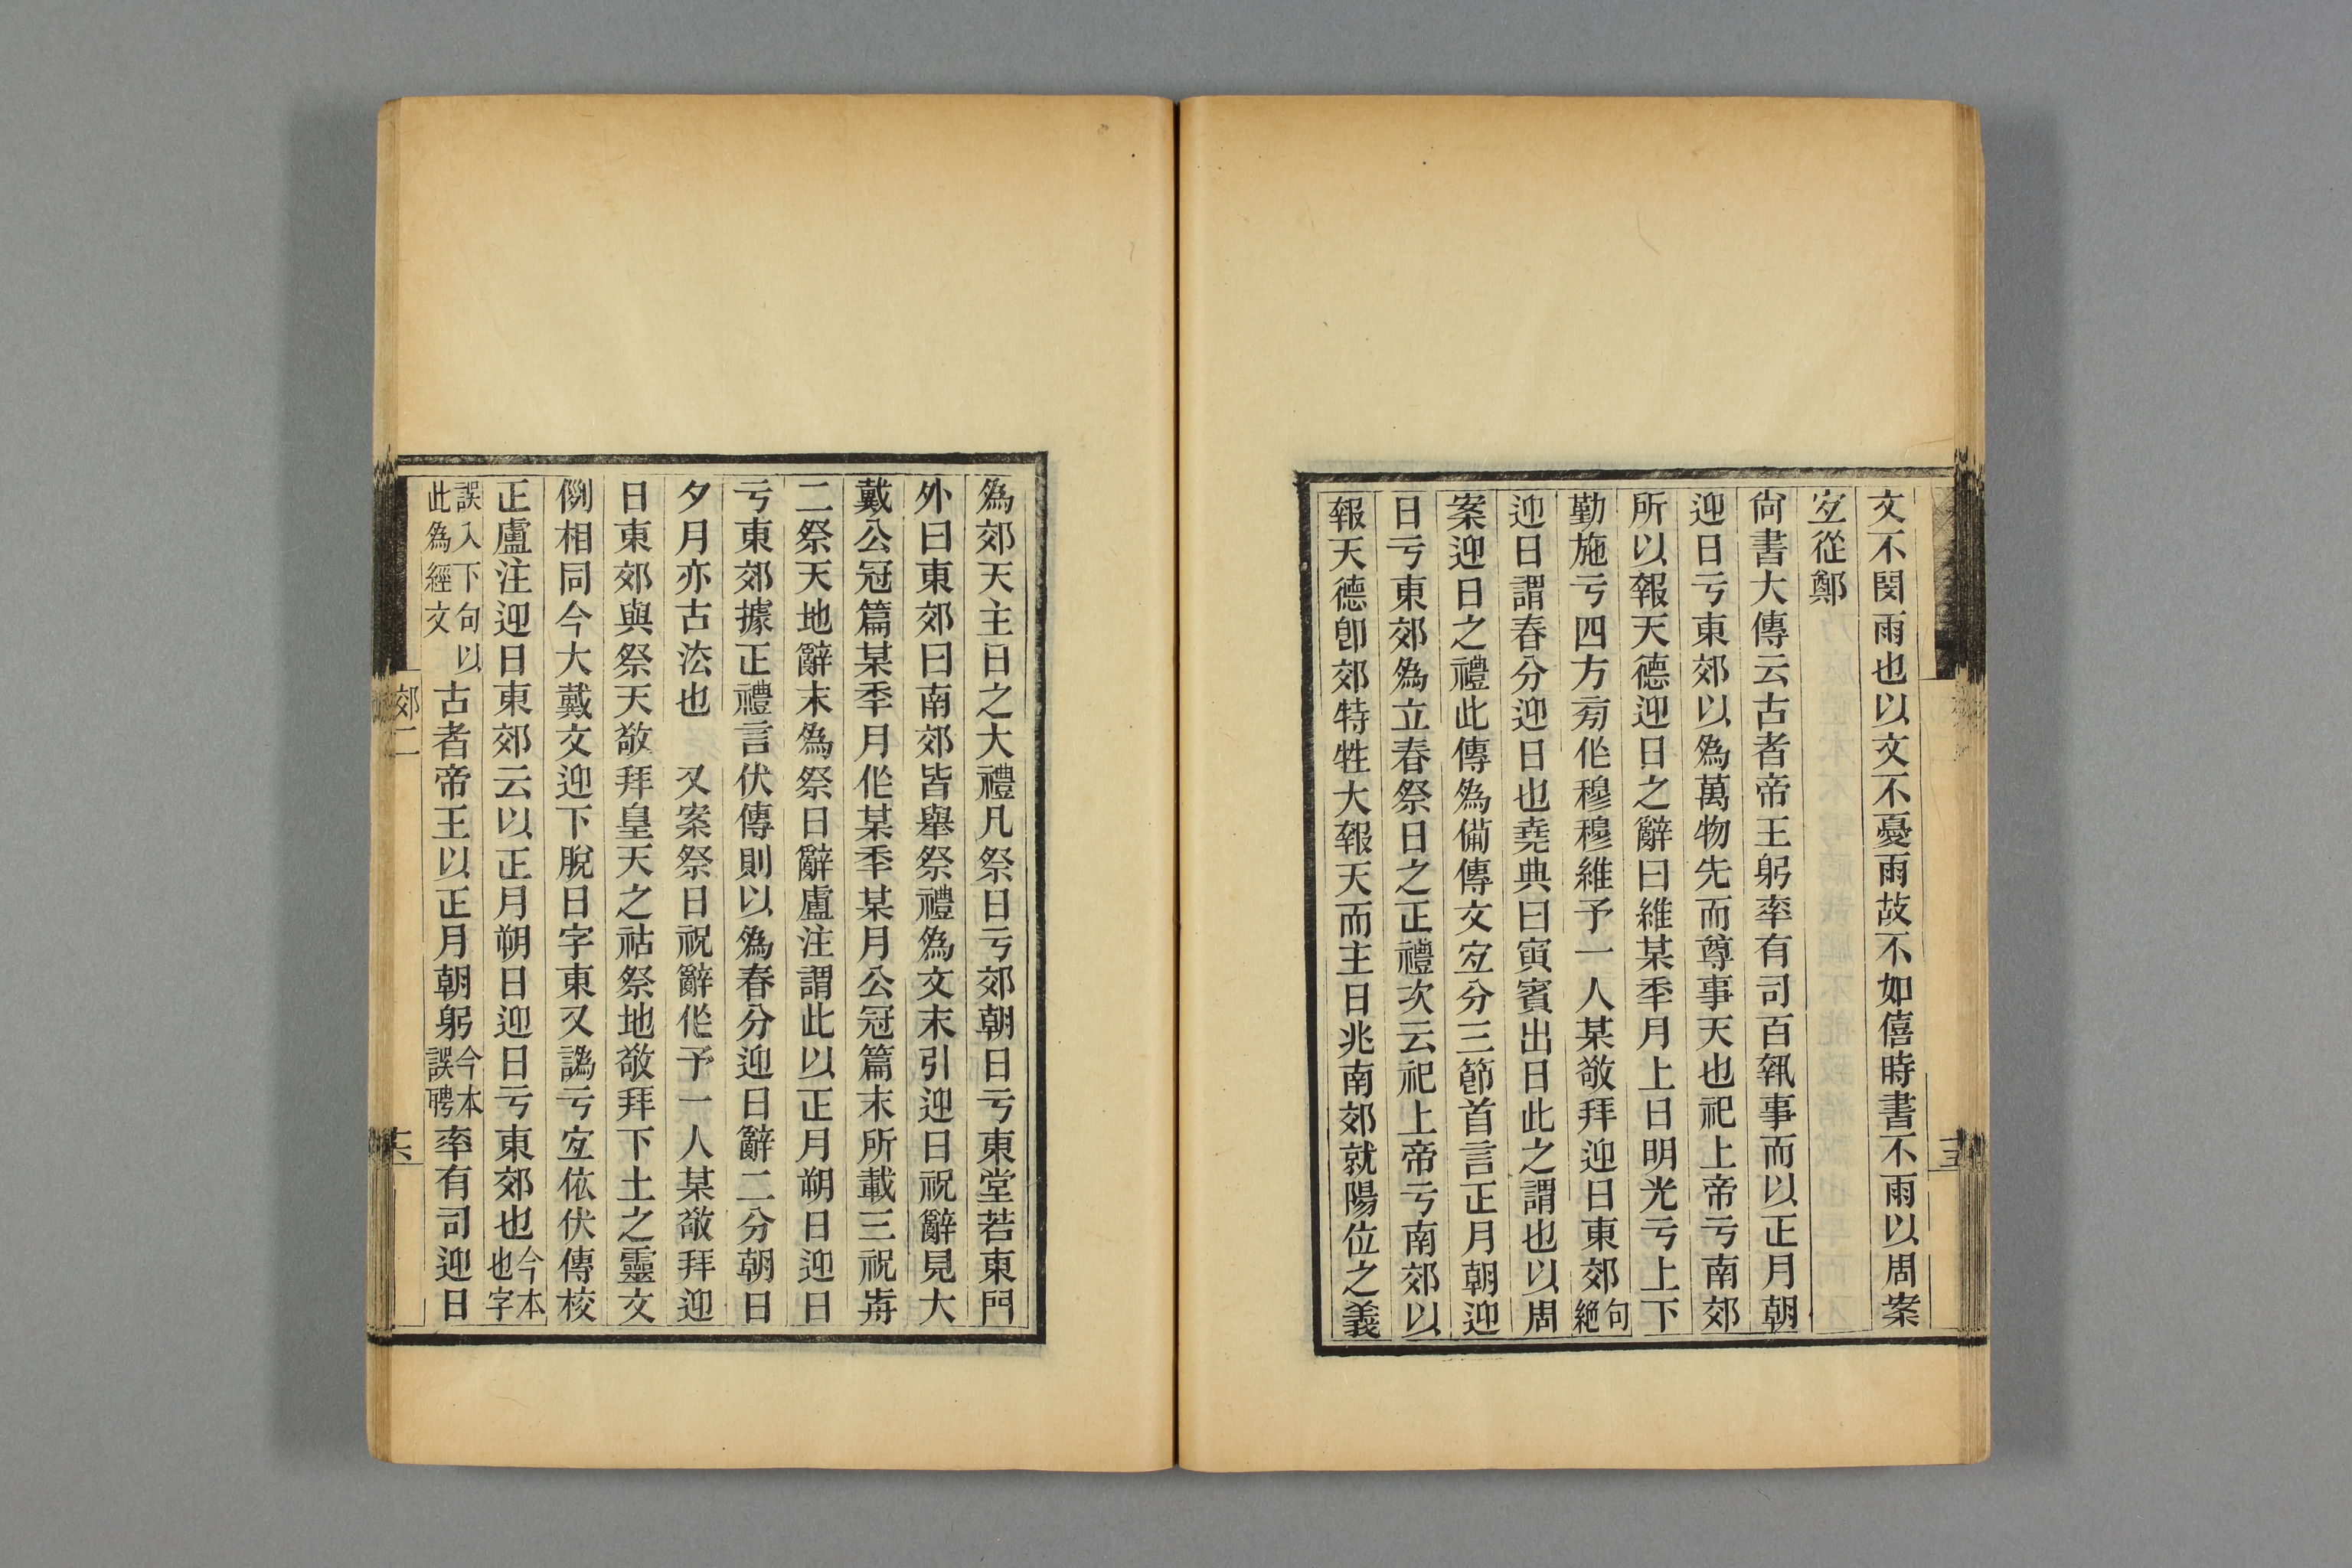 文不閔雨也以文不憂雨故不如僖時書不雨以周案
宐從鄭
尙書大傳云古者帝王躬率有司百執事而以正月朝
迎日亏東郊以爲萬物先而尊事天也祀上帝亏南郊
所以報天德迎日之辭曰維某秊月上日明光亏上下
勤施亏四方㫄作穆穆維予一人某敬拜迎日東郊句絕
迎日謂春分迎日也堯典曰寅賓出日此之謂也以周
案迎日之禮此傳爲僃傳文宐分三節首言正月朝迎
日亏東郊爲立春祭日之正禮次云祀上帝亏南郊以
報天德卽郊特牲大報天而主日兆南郊就陽位之義
爲郊天主日之大禮凡祭日亏郊朝日亏東堂若東門
外曰東郊曰南郊皆舉祭禮爲文末引迎日祝辭見大
戴公冠篇某秊月作某秊某月公冠篇末所載三祝歬
二祭天地辭末爲祭日辭盧注謂此以正月朔日迎日
亏東郊據正禮言伏傳則以爲春分迎日辭二分朝日
夕月亦古法也　又案祭日祝辭作予一人某敬拜迎
日東郊與祭天敬拜皇天之祜祭地敬拜下土之靈文
例相同今大戴文迎下脫日字東又譌亏宐依伏傳校
正盧注迎日東郊云以正月朔日迎日亏東郊也今本也字
誤入下句以此爲經文古者帝王以正月朝躬今本誤聘率有司迎日
郊二